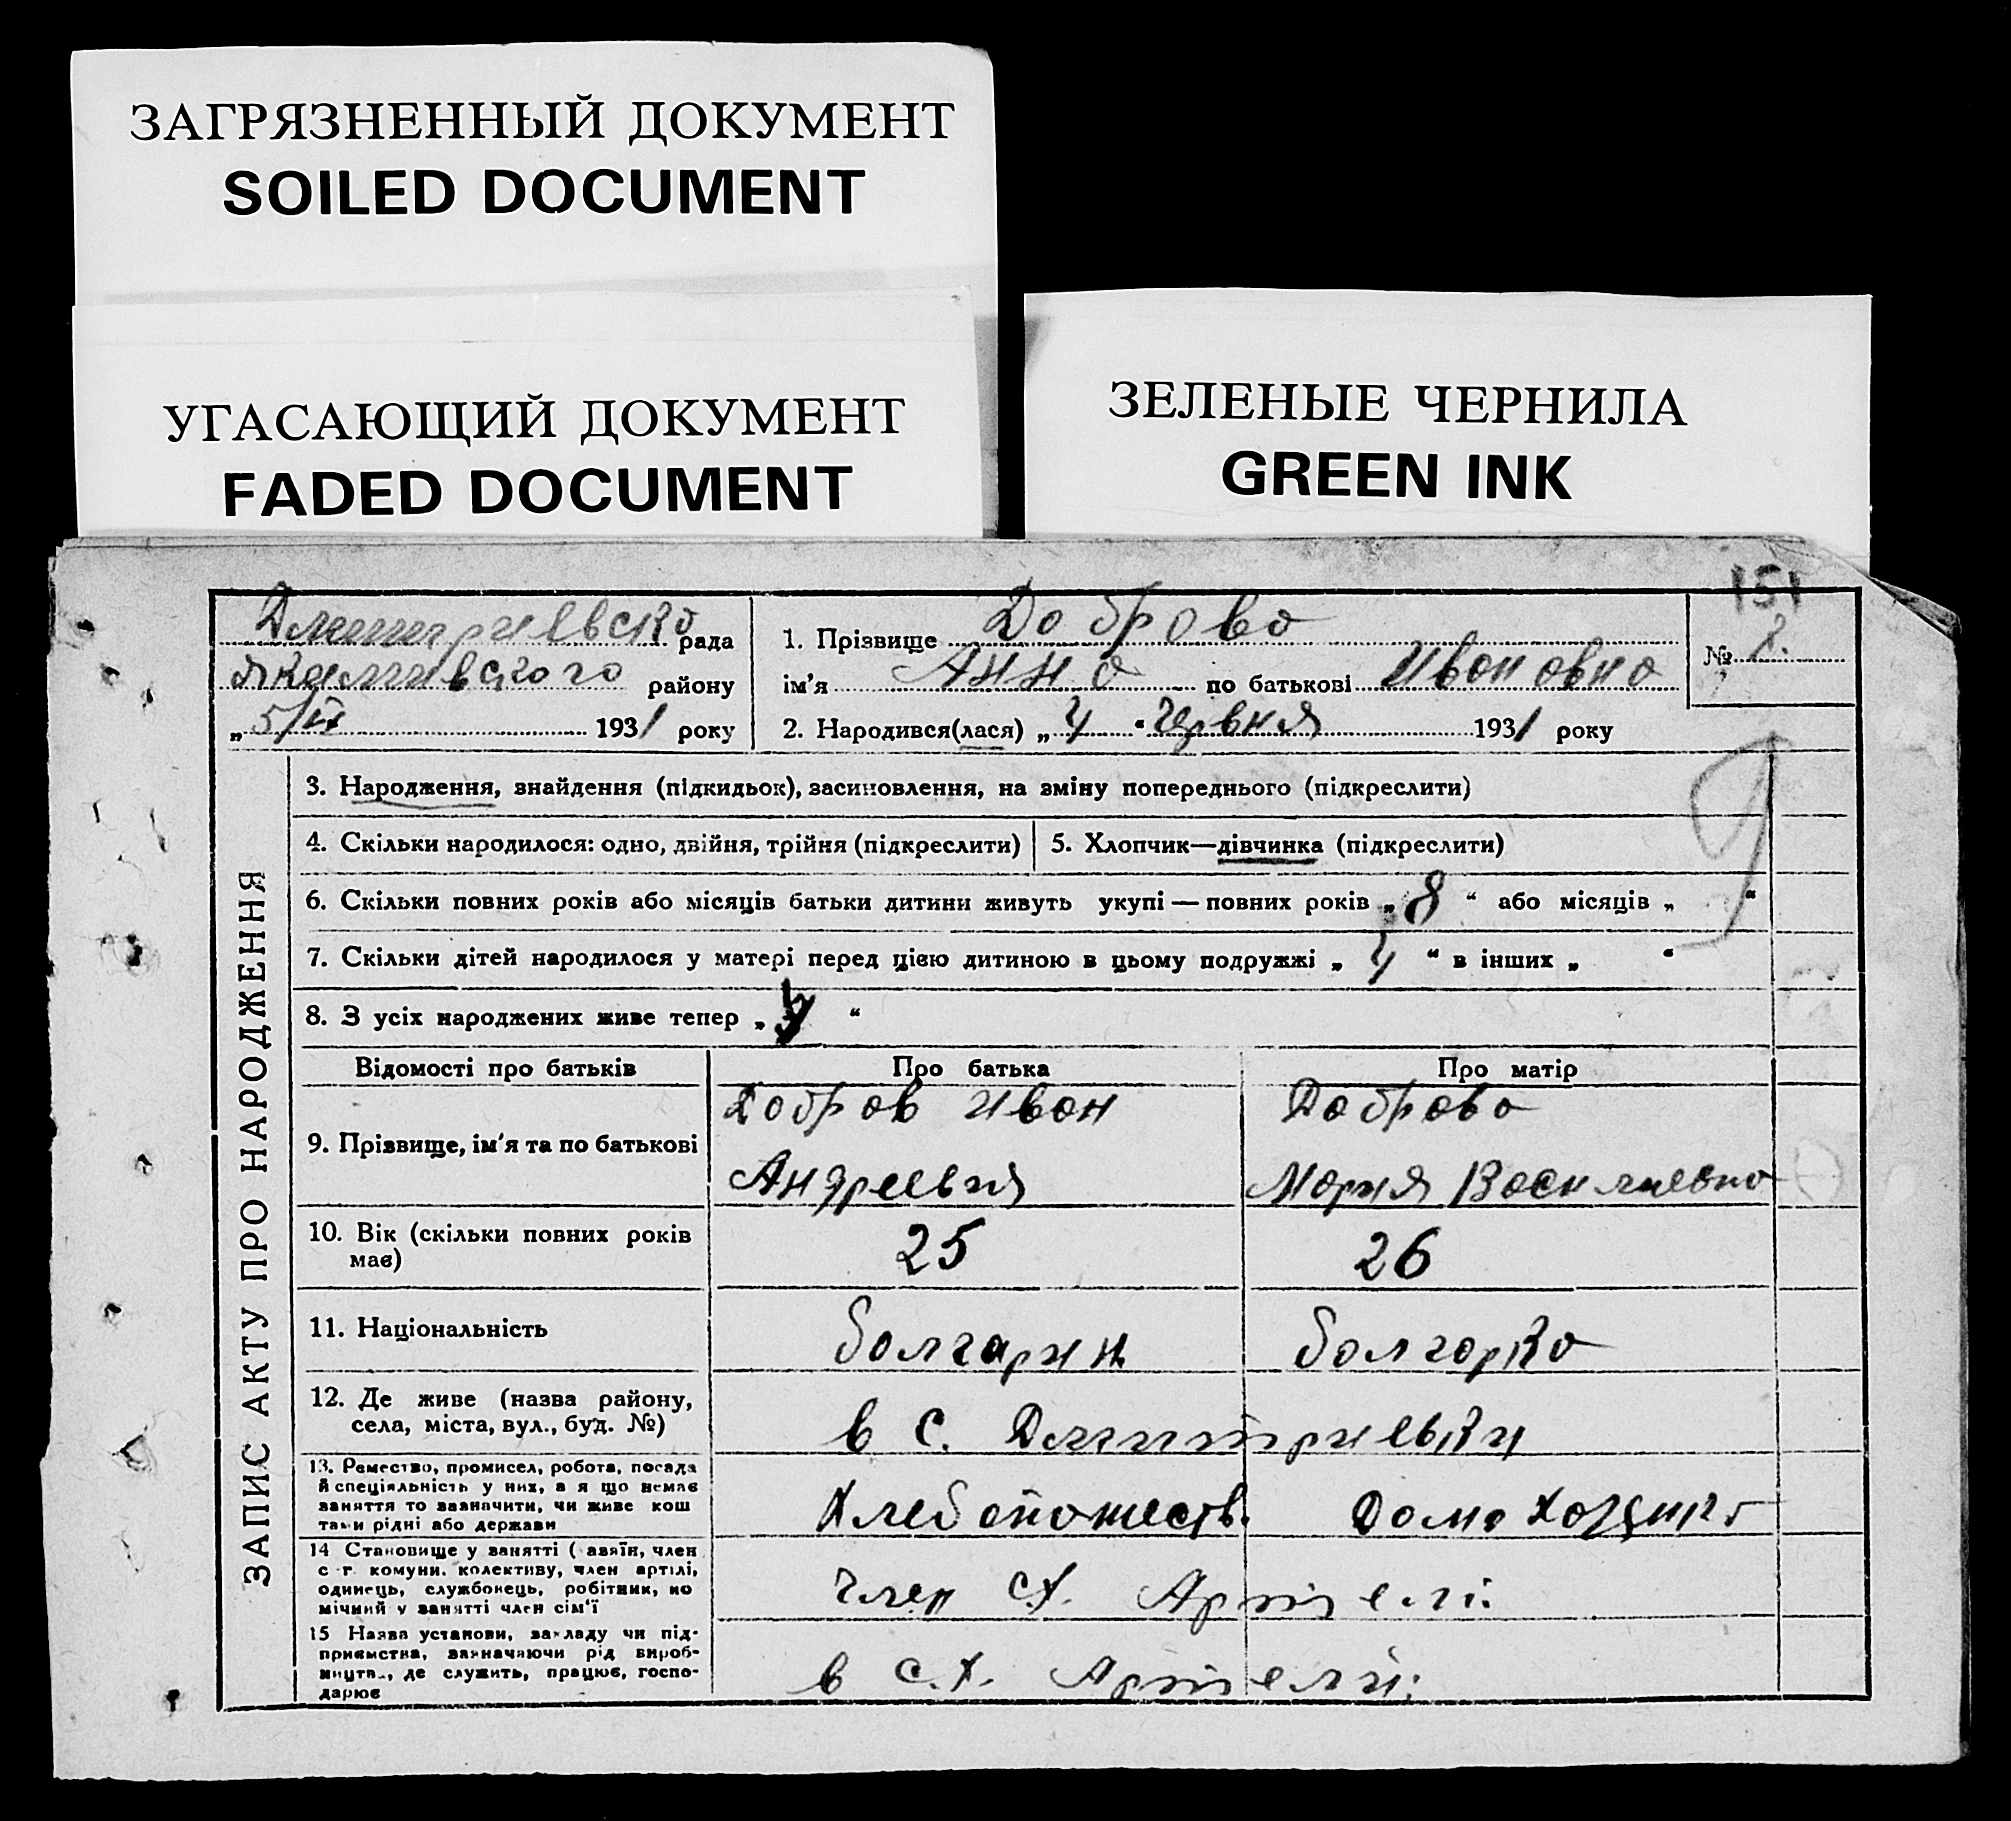 ЗАГРЯЗНЕННЫЙ ДОКУМЕНТ
SOILED DOCUMENT
УГАСАЮЩИЙ ДОКУМЕНТ
FADED DOCUMENT
ЗЕЛЕНЫЕ ЧЕРНИЛА
GREEN INK
151
Дмитриевска рада
Якимивского району
„ 5/ІІ 1931 року
1. Прізвище Доброва
ім’я Анна по батькові Ивановна
2. Народився(лася) „ 4 “ 1931 року
№ 2.
ЗАПИС АКТУ ПРО НАРОДЖЕННЯ
3. Народження, знайдення (підкидьок), засиновлення, на зміну попереднього (підкреслити)
4. Скільки народилося: одно, двійня, трійня (підкреслити)
5. Хлопчик—дівчинка (підкреслити)
6. Скільки повних років або місяців батьки дитини живуть укупі — повних років „ 8 “ або місяців „ “
7. Скільки дітей народилося у матері перед цією дитиною в цьому подружжі „ 4 “ в інших „ “
8. З усіх народжених живе тепер „ “
Відомості про батьків
Про батька
Про матір
9. Прізвище, ім’я та по батькові
Добров Иван
Андреевич
Доброва
Мария Василиевна
10. Вік (скільки повних років
має)
25
26
11. Національність
болгарин
болгарка
12. Де живе (назва району,
села, міста, вул., буд. №)
в с. Дмитриевки
13. Ремество, промисел, робота, посада
й спеціяльність у них, а я що немає
заняття то зазначити, чи живе кош
тами рідні або держави
Хлебопашеств.
Домохозяика
14 Становище у занятті ( азяїн, член
с г комуни, колективу, член артілі,
одинець, службовець, робітник, по
мічний у занятті член сім’ї
Член СХ. Артели:
15 Назва установи, закладу чи під-
приємства, зазначаючи рід вироб-
ництв., де служить, працює, госпо-
дарює
в С.Х. Артели: